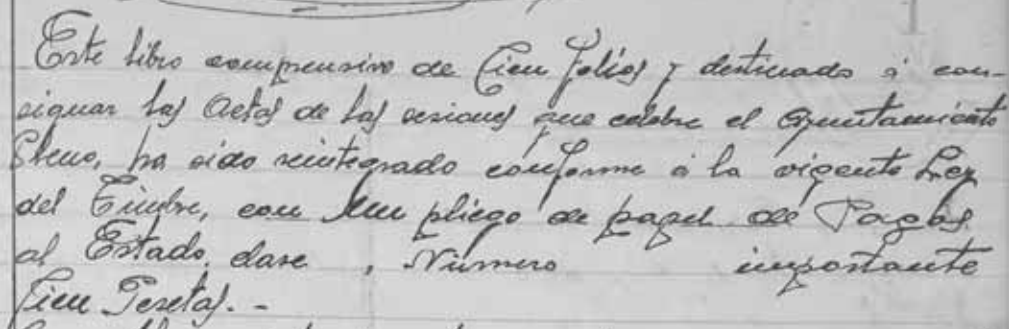 Este libro comprensivo de Cien folios y destinado á con-
signar las Actas de las sesiones que celebre el Ayuntamiento
Pleno, ha sido reintegrado conforme á la vigente Ley
del Timbre, con un pliego de papel de Pagos
al Estado, clase , Número importante
Cien Pesetas.-